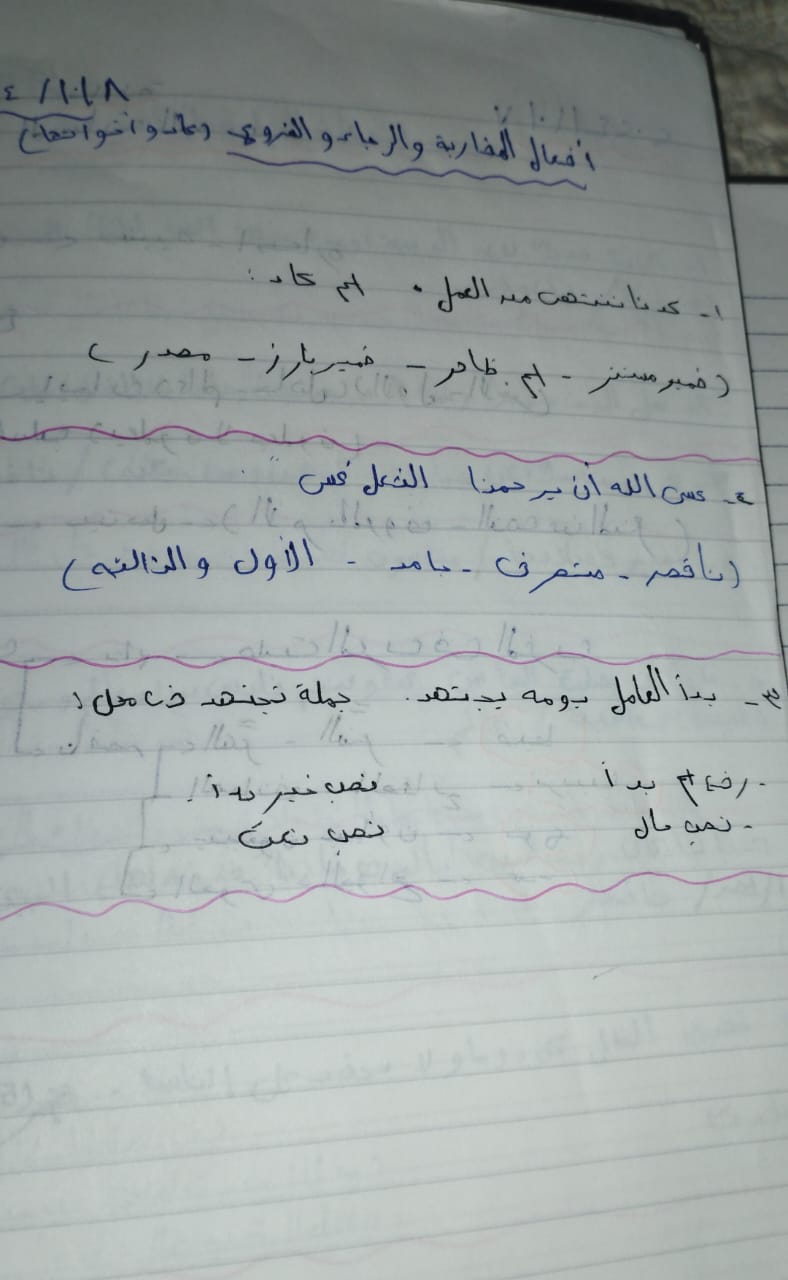 ٨ / ١٠ / ٤
أفعال المقاربة والرجاء والشروع (كاد وأخواتها)
١- كدنا ننتهي من العمل . اسم كاد :
(ضمير مستتر - اسم ظاهر - ضمير بارز - مصدر)
٢- عسى الله أن يرحمنا الفعل عسى :
(ناقص - متصرف - جامد - الأول والثالثة)
٣- بدأ العامل بومه يجتهد. جملة تجتهد في محل :
- رفع اسم بدأ نصب خبر بدأ.
- نصب حال نصب نعت